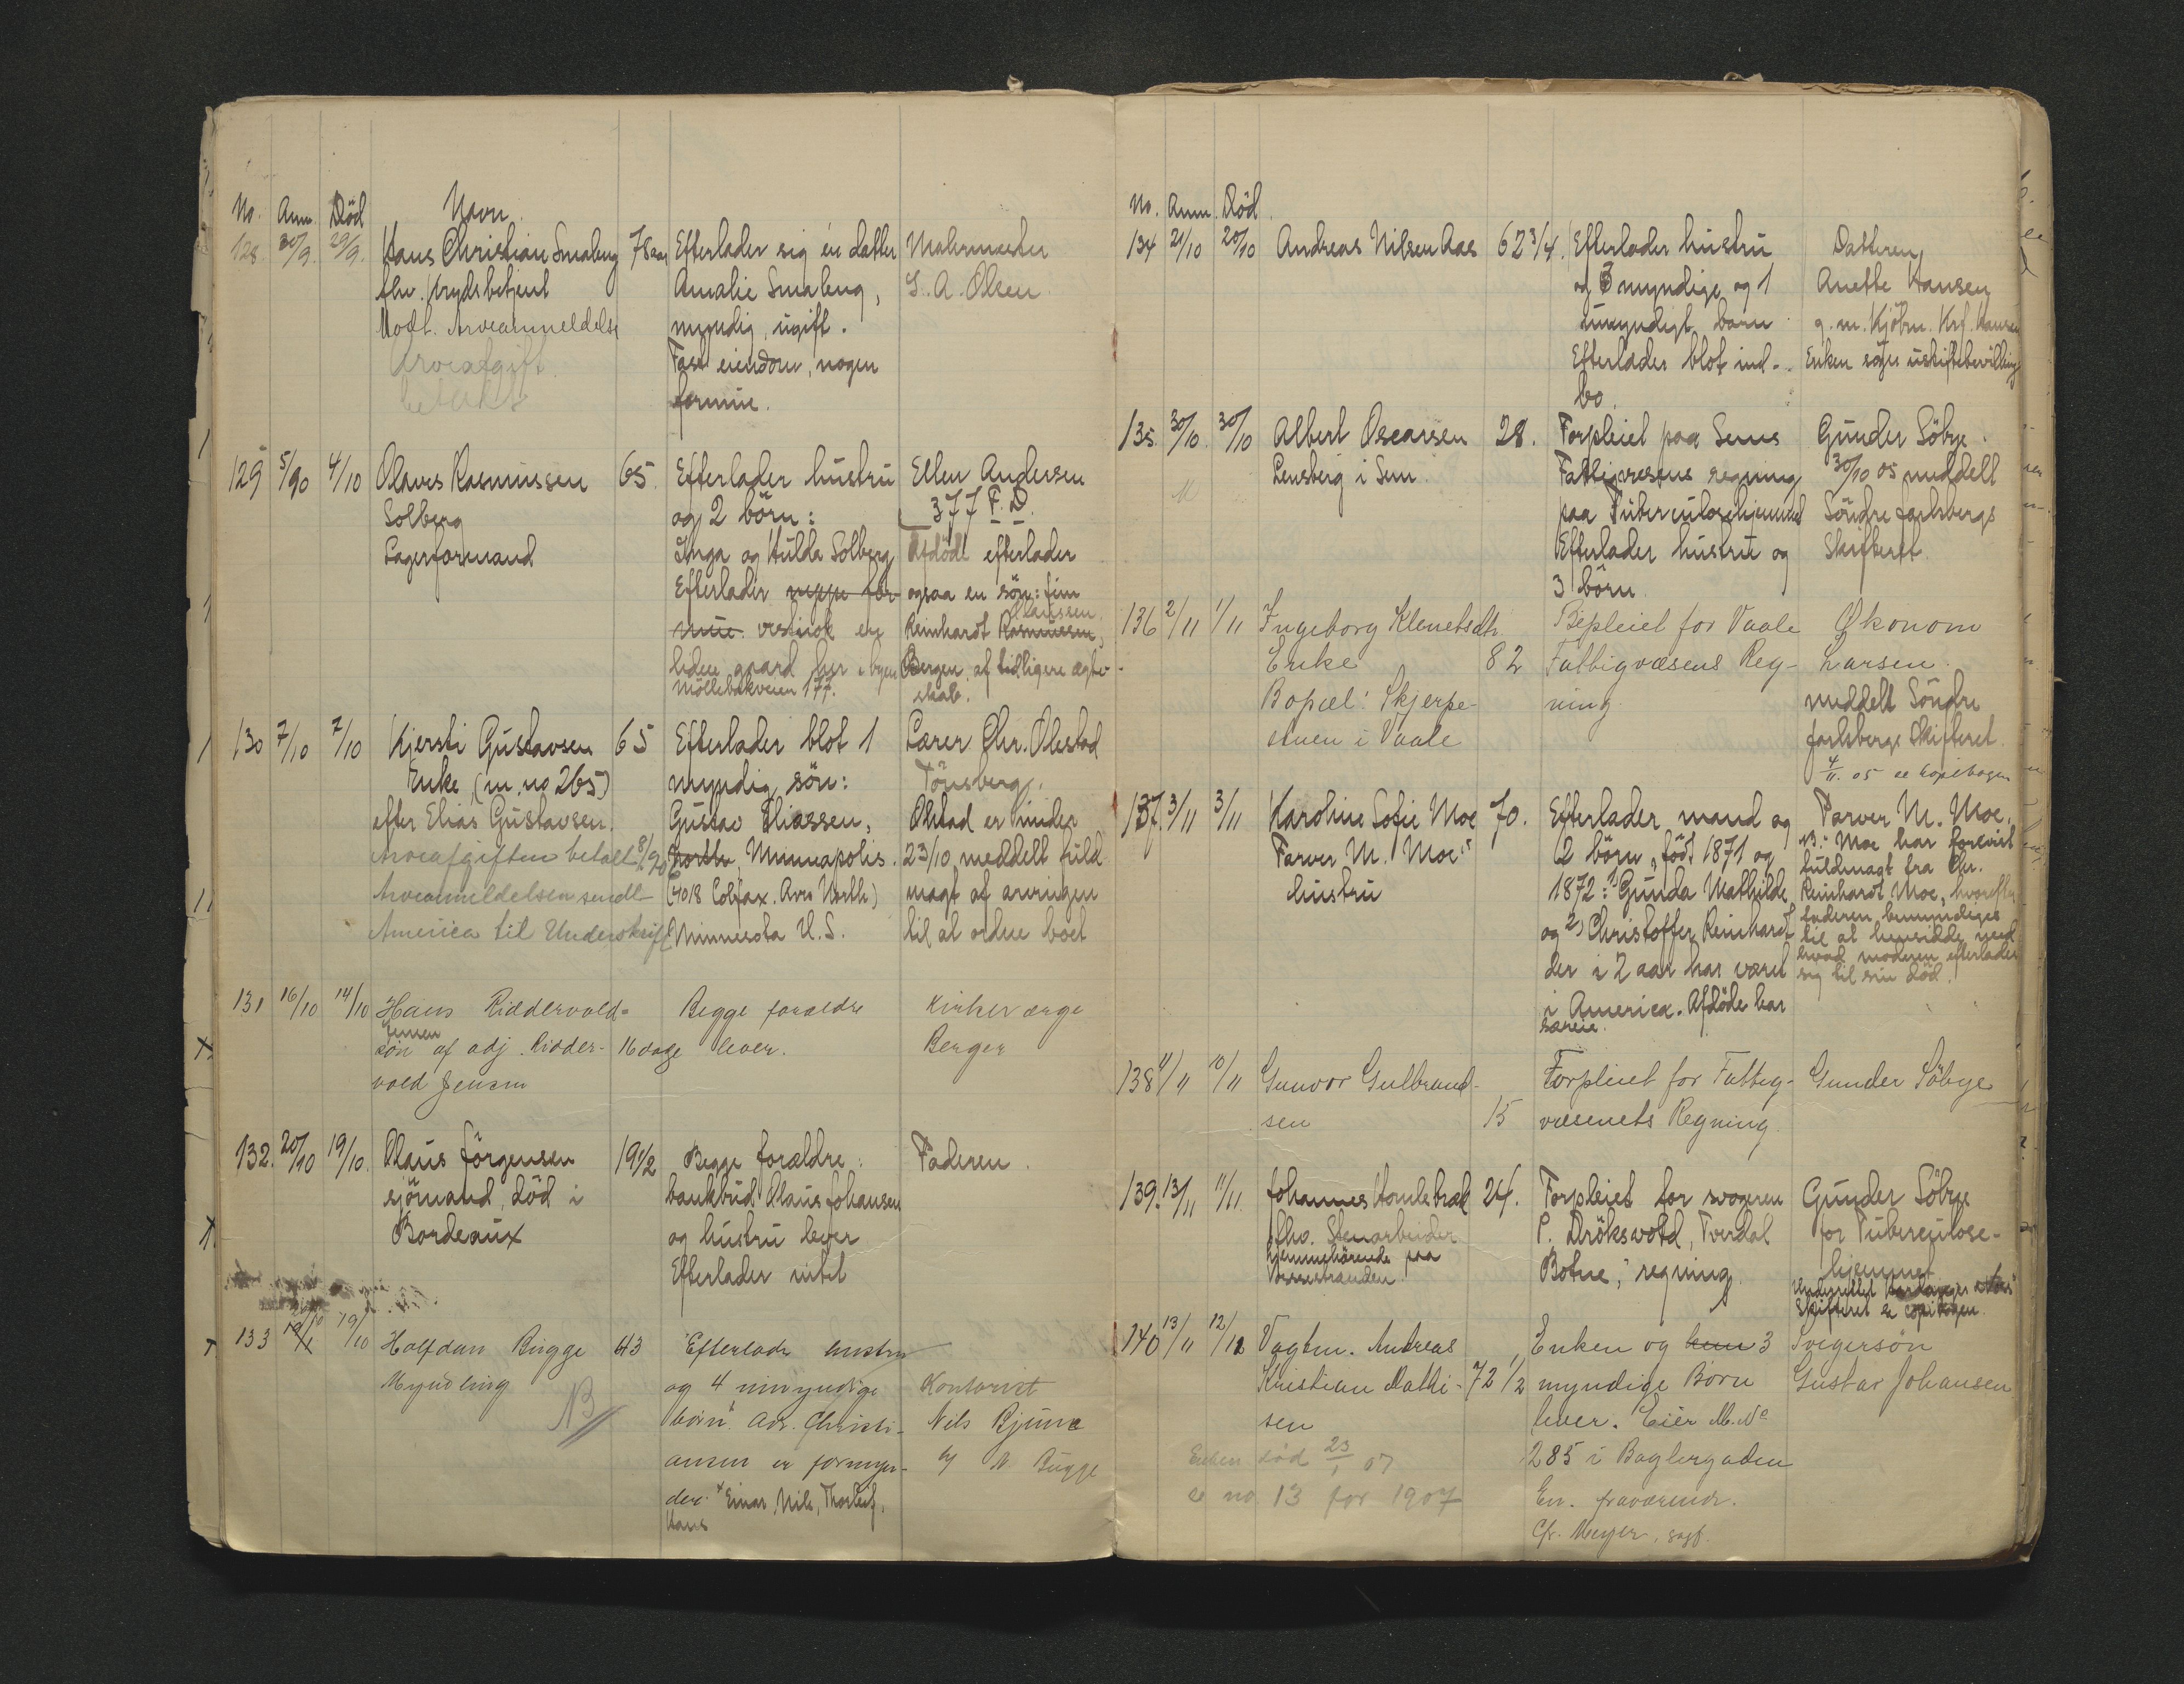 No. Anm. Död Navn.
128. 30/9. 29/9. Hans Christian Smaberg 78 aar Efterlader sig én datter Malermester
fhv. brydsbetjent Amalie Smaberg, S. A. Olsen
Modt. Arveanmeldelse myndig, ugift.
Arveafgift Fast eiendom, nogen
betalt formue.
129 5/10 4/10 Olaves Rasmussen 65. Efterlader hustru Ellen Andersen
Solberg og 2 börn: 377 F. D.
Lagerformand Inga og Hulda Solberg Afdöde efterlader
Efterlader neppe for- ogsaa en sön: Finn
mue. Claussen
Reinhardt Rasmussen,
gaard her i byen Bergen, af tidligere ægte-
Möllebakveien 177. skab.
130 7/10 7/10 Kjersti Gustavsen 65 Efterlader blot 1 Lærer Chr. Olestad
Enke, (m. no 265) myndig sön: Tönsberg.
efter Elias Gustavsen. Gustav Eliassen, Olstad er under
Arveafgiften betalt North, Minneapolis. 23/10 meddelt fuld-
Arveanmeldelsen sendt (4018 Colfax. Ave North) magt af arvingen
America til Underskrift Minnesota U. S. til at ordne boet
131 16/10 14/10 Hans Riddervold- Begge forældre Kirkeværge
Jensen
sön af adj. Ridder- 16 dage lever. Berger
vold Jensen
132. 20/10 19/10. Olaus Jörgensen 19 1/2 Begge forældre: Faderen.
sjömand, död i bankbud Olaus Johansen
Bordeaux og hustru lever
Efterlader intet
133 19/10 Halfdan Bugge 43 Efterlader hustru
Myndling og 4 umyndige Kontorist
NB börn x Adv. Christi- Nils Bjune
ansen er formyn- N. Bugge
der. x Einar, Nils, Thorleif,
Hans
No. Anm. Död.
134 21/10 20/10 Andreas Nilsen Aas 62 3/4. Efterlader hustru Datteren,
og 3 myndige og 1 Anette Hansen
umyndigt barn g. m. Kjöbm. Krf. Hansen
Efterlader blot ind- Enken söger uskiftebevilling
bo.
135. 30/10. 30/10 Albert Oscarsen 28. Forpleiet paa Sems Gunder Söbye.
Lensberg i Sem. Fattigvæsens regning 30/10 05 meddelt
paa Tuberculosehjemmet Söndre Jarlsbergs
Efterlader hustru og Skifteret.
3 börn.
136 2/11 1/11 Ingeborg Klemetsdtr. Bepleiet for Vaale Økonom
Enke 82 Fattigvæsens Reg- Larsen.
Bopæl: Skjerpe- ning. meddelt Söndre
stuen i Vaale Jarlsbergs Skifteret.
4/11. 05 se kopibogen
137. 3/11 3/11 Karoline Sofie Moe 70. Efterlader mand og Farver M. Moe.
Farver M. Moe's 2 börn, födt 1871 og NB. Moe har forevist
hustru 1872: 1) Gunda Mathilde fuldmagt fra Chr.
og 2) Christoffer Reinhardt Reinhardt Moe, hvorefter
der i 2 aar har været faderen bemyndiges
i America. Afdöde har til at hensidde med
særeie. hvad moderen efterlader
sig til sin död.
138 11/11 10/11 Gunvor Gulbrand- Forpleiet for Fattig- Gunder Söbye
sen 15 væsenets Regning.
139. 13/11 11/11. Johannes Homlebræk 24. Forpleiet for svogeren Gunder Söbye
fhv. Stenarbeider P. Drökswold, Tverdal for Tuberculose-
hjemmehörende paa Botne, regning. hjemmet
Skifteret se copibogen.
140 13/11 12/11 Vagtm. Andreas Enken og 3 Svigersön
Kristian Mathi- 72 1/2 myndige Börn Gustav Johansen
sen lever. Eier M. No
Enken död 23/1 07 285 i Baglergaden
se no 13 for 1907 En. fraværende.
Cfr. Meyer, sagf.